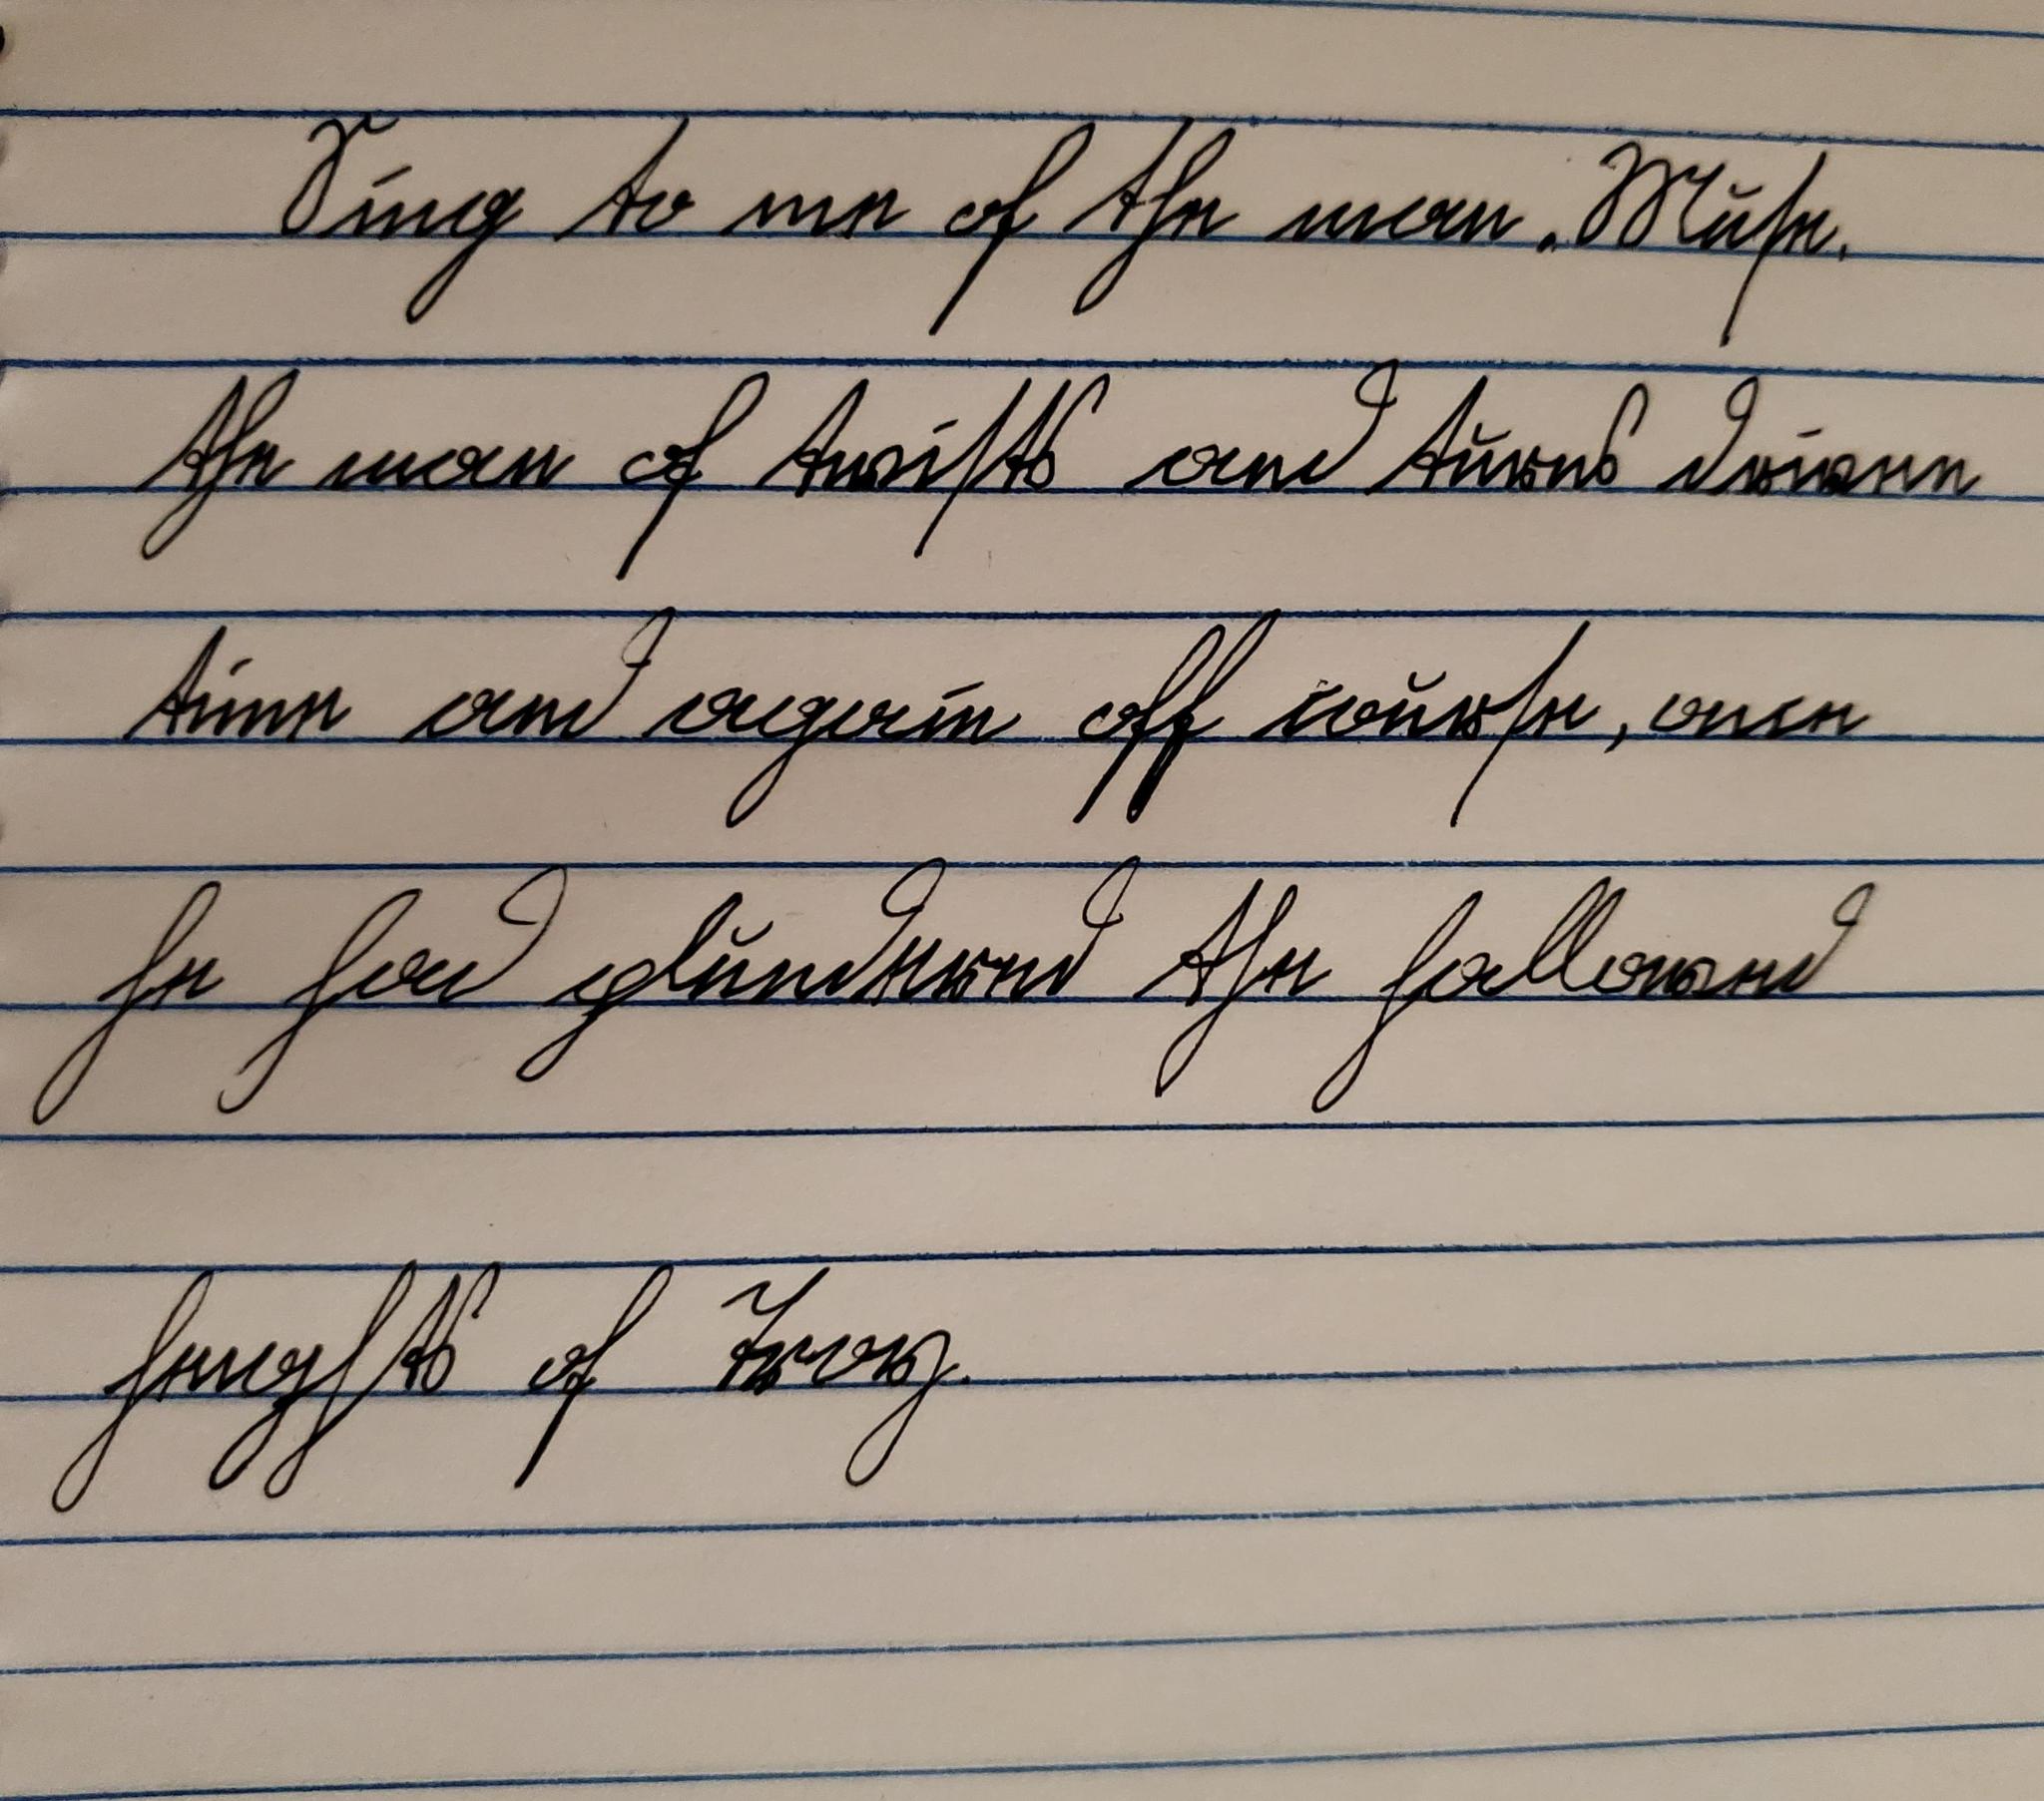 Sing to me of the man. Muse.
the man of twists and turns driven
time and again off course, once
he had plundered the hallowed
heights of Troy.